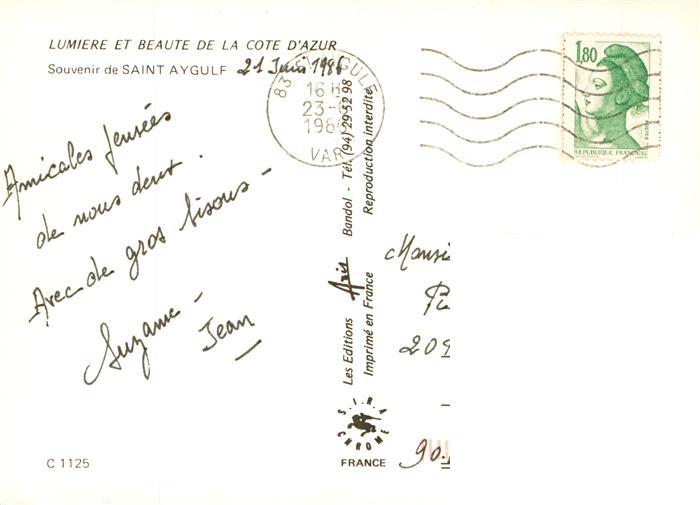 LUMIERE ET BEAUTE DE LA COTE D'AZUR
Souvenir de SAINT AYGULF 21 Juin 1986
83 AYGULF
16 H
23-6
1986
VAR
1,80
POSTES
REPUBLIQUE FRANÇAISE
Amicales pensées
de nous deux.
Avec de gros bisous -
Suzanne -
Jean
Les Editions Aris Bandol - Tél. (94) 29 52 98
Imprimé en France Reproduction interdite
Monsi
209
90.
SIRA
CHROME
FRANCE
C 1125